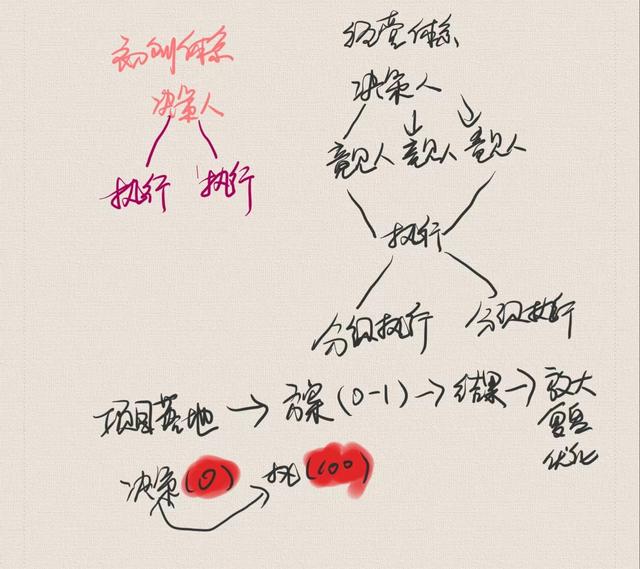 体系
决策人
执行 执行
体系
决策人
意见人 意见人 意见人
执行
分组执行 分组执行
项目落地 → 方案(0-1) → 结果 → 放大
复盘
优化
决策(0) 执(100)